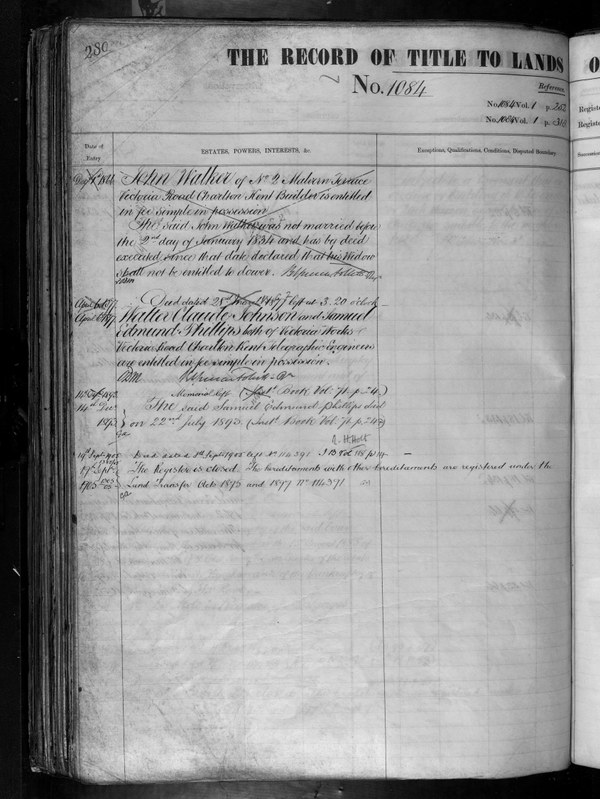 230
THE RECORD OF TITLE TO LANDS
O
No. 1084
Reference
No. 1084 Vol. 1 p. 262
Registe
No. 1084 Vol. 1 p. 313
Registe
Date of
Entry
ESTATES, POWERS, INTERESTS, &c.
Exceptions, Qualifications, Conditions, Disputed Boundary
John Walker of No 2 Malvern Terrace
Victoria Road Charlton Kent Builder is entitled
in fee simple in possession
The said John Walker was not married before
the 2nd day of January 1834 and has by deed
executed since that date declared that his widow
shall not be entitled to dower.
Deed dated 28th 1877 left at 3.20 o'clock
Walter Claude Johnson and Samuel
Edmund Phillips both of Victoria Works
Victoria Road Charlton Kent Telegraphic Engineers
are entitled in fee simple in possession.
Memorial left (Inst. Book Vol. 74 p. 24)
14th Dec
The said Samuel Edmund Phillips died
1893
on 22nd July 1893 (Inst. Book Vol. 74 p. 24)
19th Sept 1905
Deed dated 1st Sept 1905 left No 114391
19th Sept
The Register is closed. The hereditaments with other hereditaments are registered under the
1905
Land Transfer Acts 1875 and 1897 No 114371